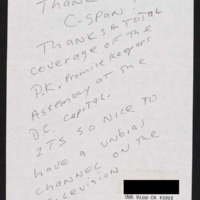 Thank
C-SPAN!
Thanks a total
coverage of the
P.K. Promise Keepers
Assembly at the
D.C. capitol.
ITS SO NICE TO
have a unbias
channel on the
television
CA